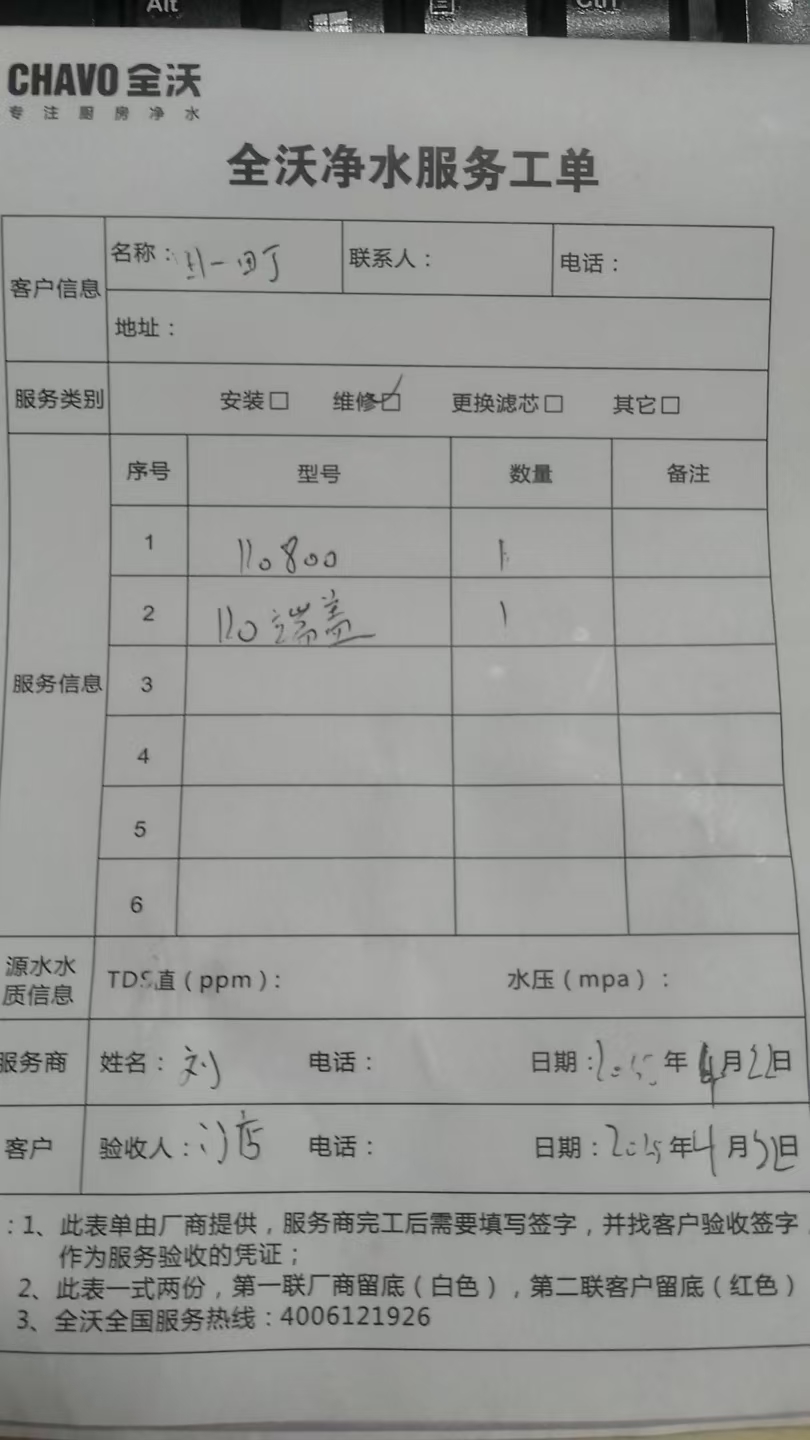 Alt
Ctrl
CHAVO 全沃
专注厨房净水
全沃净水服务工单
客户信息 名称： 一町 联系人： 电话：
地址：
服务类别 安装□ 维修☑ 更换滤芯□ 其它□
服务信息 序号 型号 数量 备注
1 110800 1
2 110端盖 1
3
4
5
6
源水水质信息 TDS值（ppm）： 水压（mpa）：
服务商 姓名：刘 电话： 日期：2025年4月22日
客户 验收人：门店 电话： 日期：2025年4月 日
：1、此表单由厂商提供，服务商完工后需要填写签字，并找客户验收签字，
作为服务验收的凭证；
2、此表一式两份，第一联厂商留底（白色），第二联客户留底（红色）
3、全沃全国服务热线：4006121926